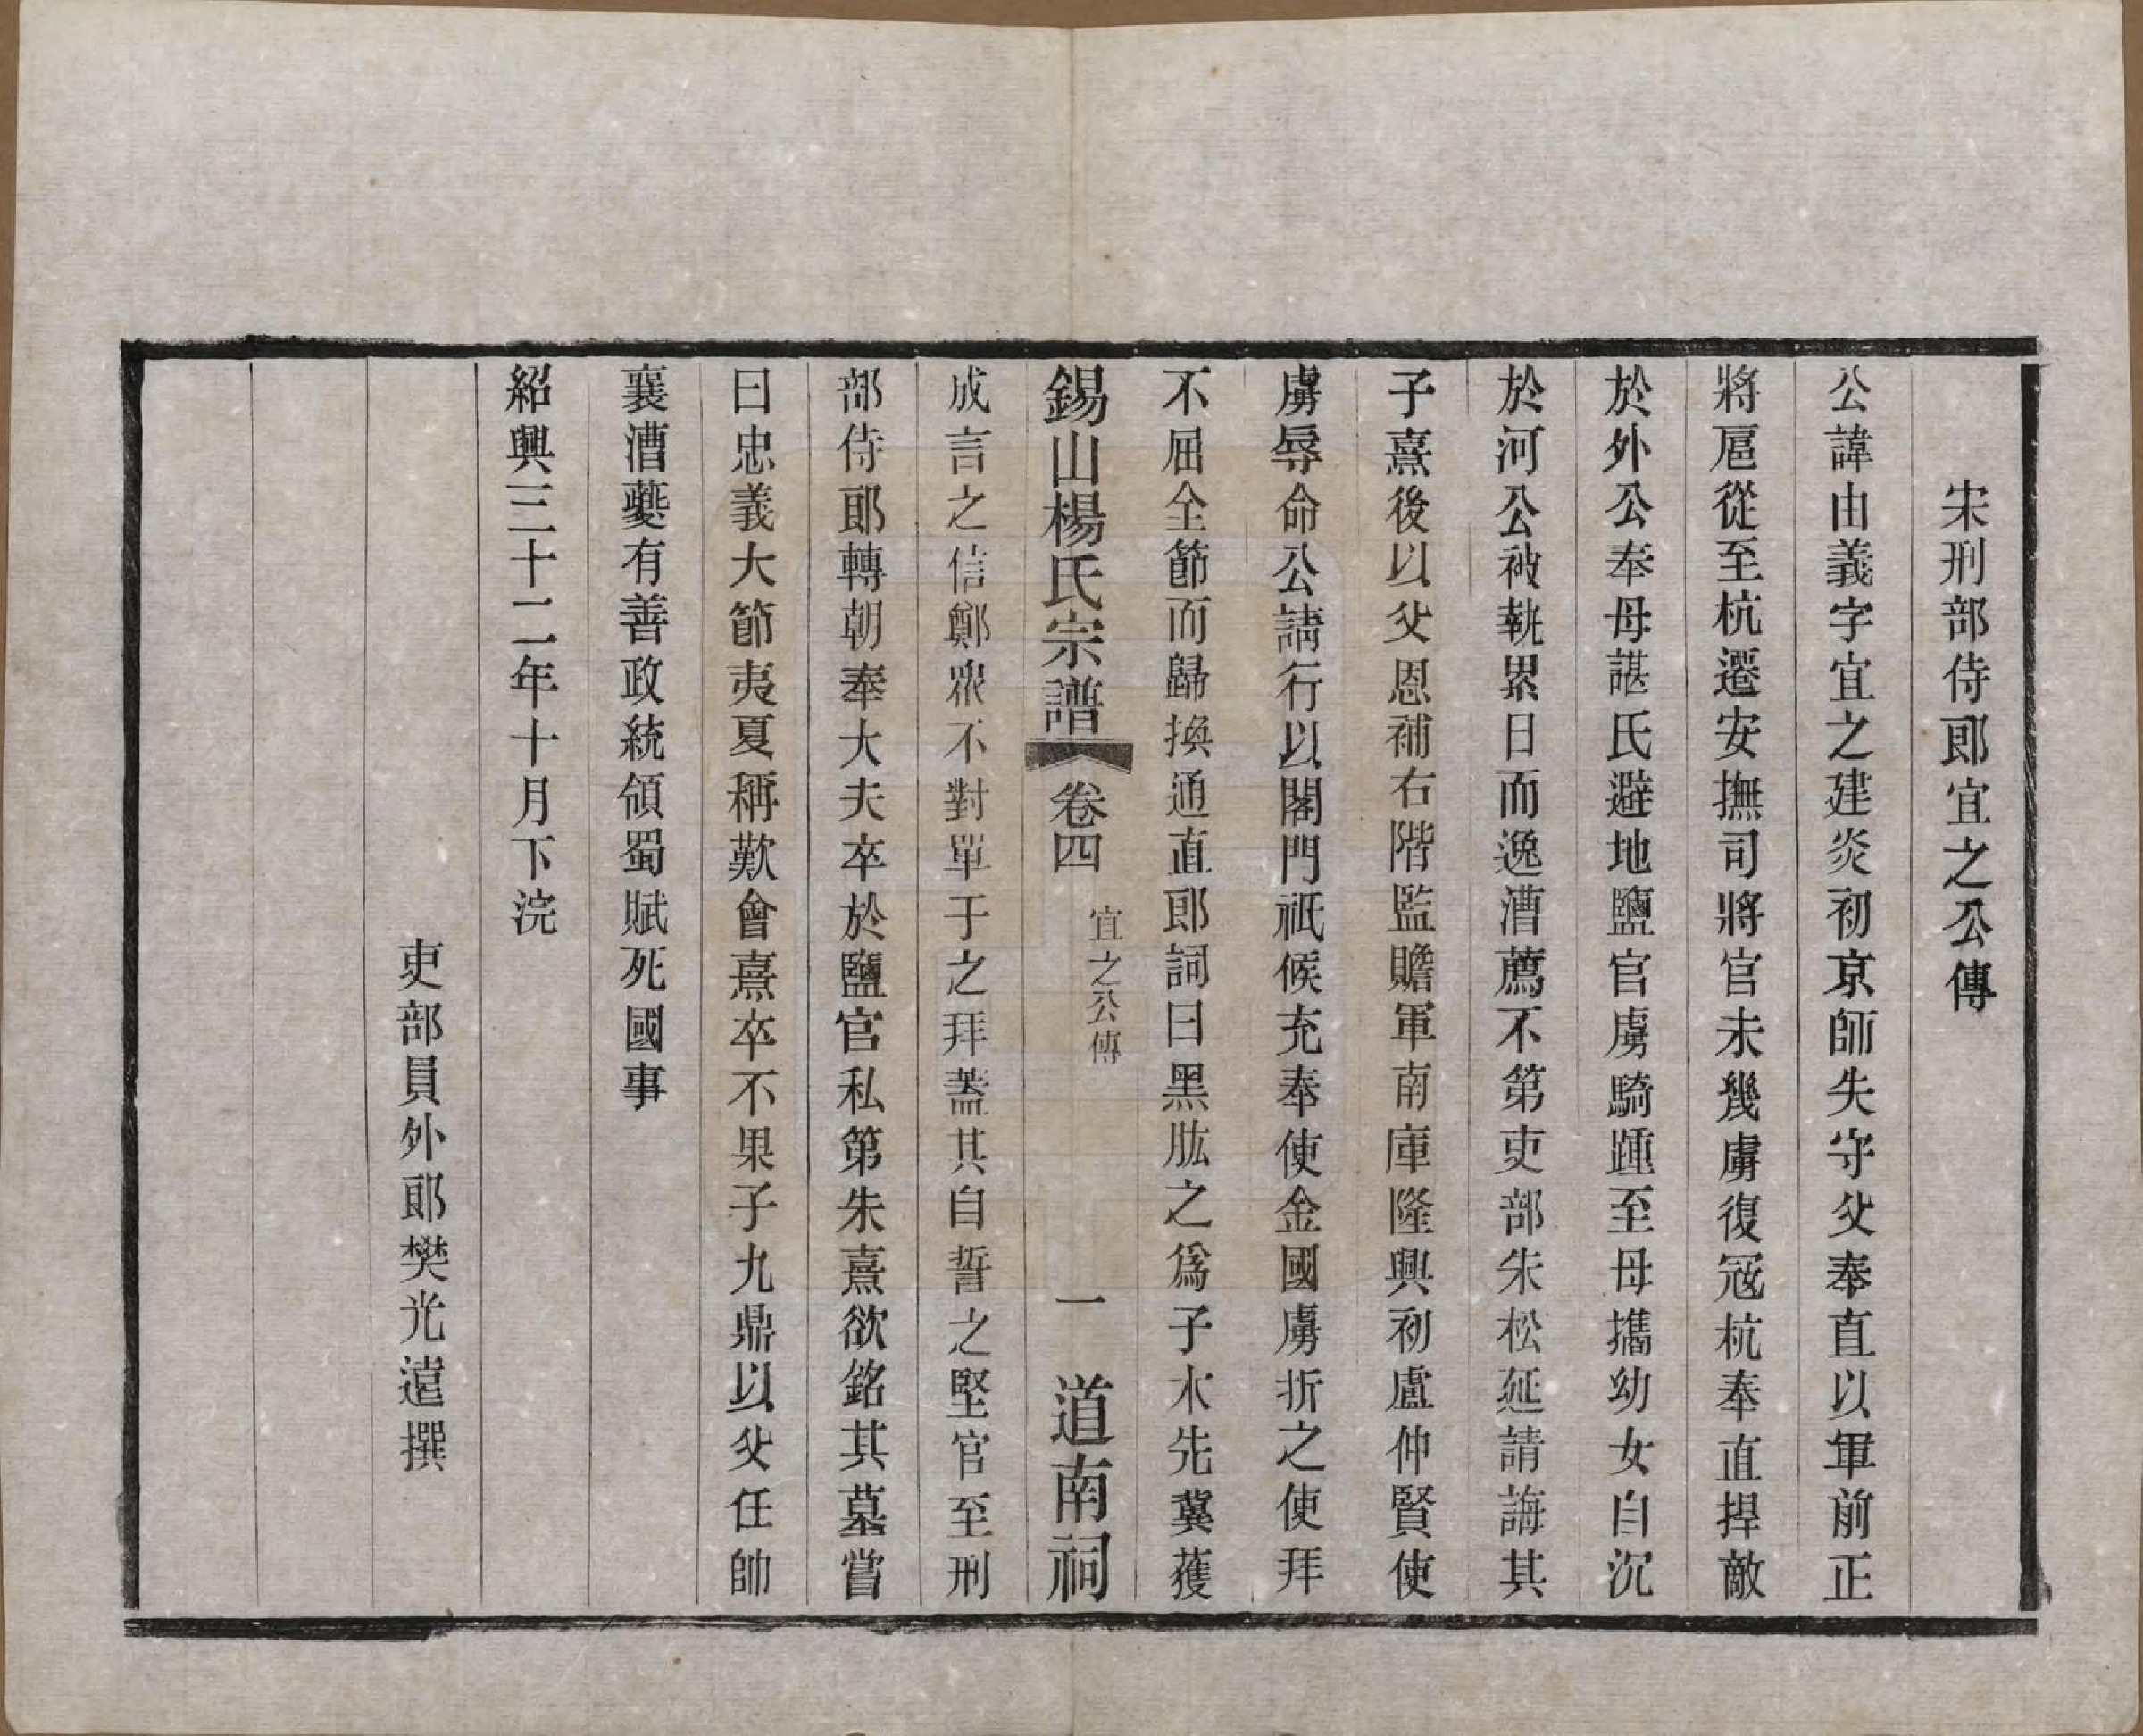 宋刑部侍郎宜之公傳
公諱由義字宜之建炎初京師失守父奉直以軍前正
將扈從至杭遷安撫司將官未幾虜復冦杭奉直捍敵
於外公奉母諶氏避地鹽官虜騎踵至母攜幼女自沉
於河公被執累日而逸漕薦不第吏部朱松延請誨其
子熹後以父恩補右階監贍軍南庫隆興初盧仲賢使
虜辱命公請行以閤門祗候充奉使金國虜折之使拜
不屈全節而歸換通直郎詞曰黑肱之爲子木先冀獲
錫山楊氏宗譜 卷四 宜之公傳 一 道南祠
成言之信鄭眾不對單于之拜葢其自誓之堅官至刑
部侍郎轉朝奉大夫卒於鹽官私第朱熹欲銘其墓嘗
曰忠義大節夷夏稱歎會熹卒不果子九鼎以父任帥
襄漕夔有善政統領蜀賦死國事
紹興三十二年十月下浣
吏部員外郎樊光遠撰